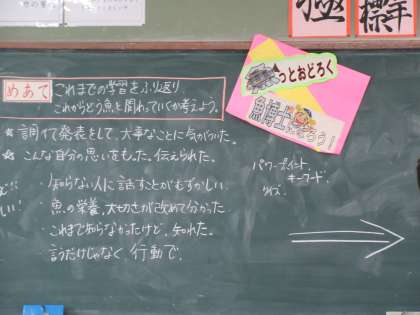 めあて
これまでの学習をふり返り、
これからどう魚と関わっていくか考えよう。
☆ 調べて発表をして、大事なことに気がついた。
☆ こんな自分の思いをもった。伝えられた。
・知らない人に話すことがむずかしい。
・魚の栄養、大切さが改めて分かった。
・これまで知らなかったけど、知れた。
・言うだけじゃなく、行動で。
っとおどろく
魚博士になろう！
パワーポイント
キーワード
クイズ
標